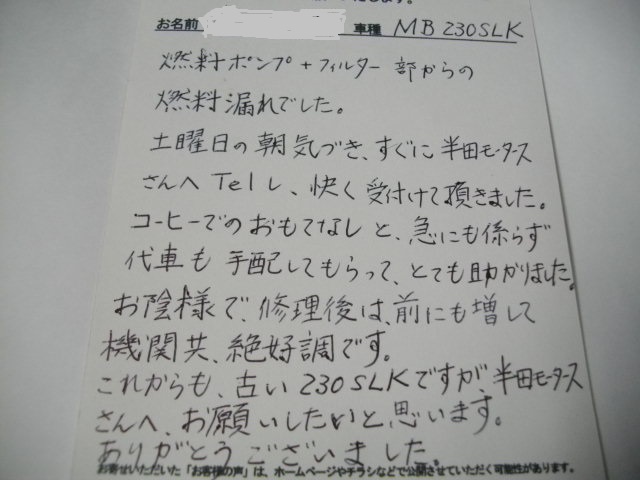 お名前 車種 MB 230SLK
燃料ポンプ+フィルター部からの
燃料漏れでした。
土曜日の朝気づき、すぐに半田モータース
さんへTelし、快く受付けて頂きました。
コーヒーでのおもてなしと、急にも係らず
代車も手配してもらって、とても助かりました。
お陰様で、修理後は、前にも増して
機関共、絶好調です。
これからも、古い230SLKですが、半田モータース
さんへ、お願いしたいと思います。
ありがとうございました。
お寄せいただいた「お客様の声」は、ホームページやチラシなどで公開させていただく可能性があります。